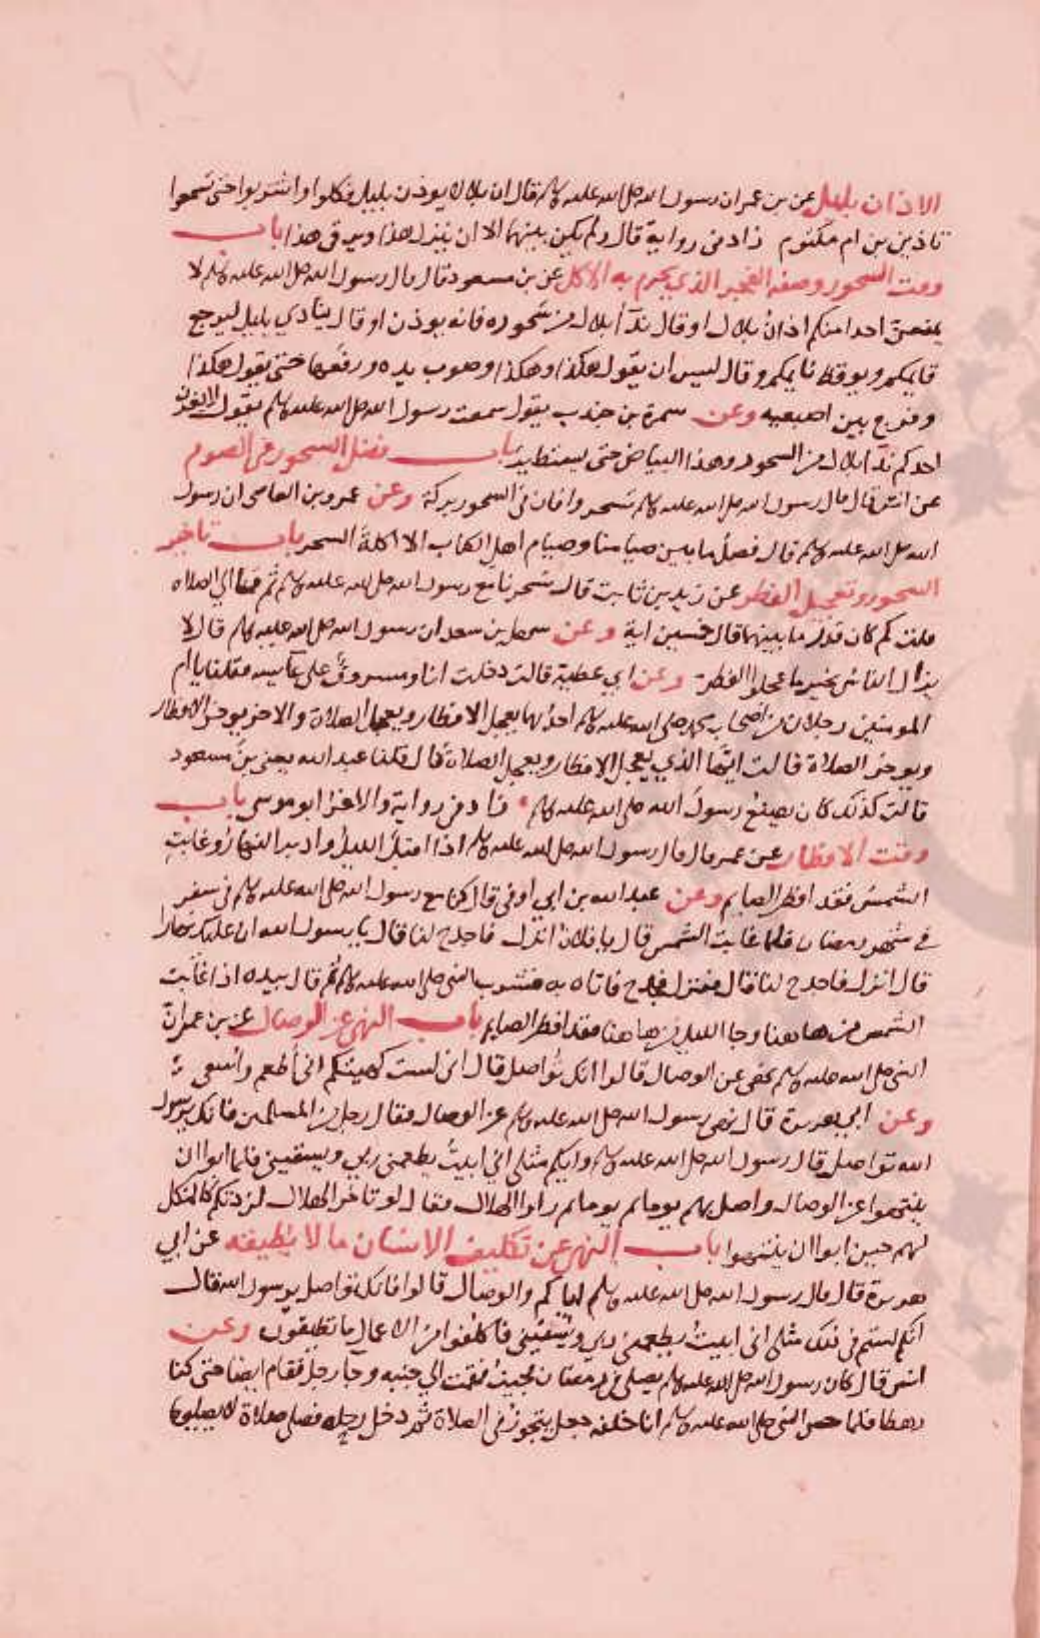 الاذان بليل عن بن عمر ان رسول الله صلى الله عليه وسلم قال ان بلالا يوذن بليل فكلوا واشربوا حتى تسمعوا
تاذين بن ام مكتوم زاد في رواية قال ولم يكن بينهما الا ان ينزل هذا ويرقى هذا باب
وقت السحور وصفه الفجر الذي يحرم به الاكل عن بن مسعود قال قال رسول الله صلى الله عليه وسلم لا
يمنعن احدا منكم اذان بلال او قال ندا بلال من سحوره فانه يوذن او قال ينادي بليل ليرجع
قايمكم ويوقظ نايمكم وقال ليس ان يقول هكذا وهكذا وصوب يده ورفعها حتى يقول هكذا
وفرج بين اصبعيه وعن سمرة بن جندب يقول سمعت رسول الله صلى الله عليه وسلم يقول لا يغرن
احدكم ندا بلال من السحور وهذا البياض حتى يستطير باب فضل السحور في الصوم
عن انس قال قال رسول الله صلى الله عليه وسلم تسحروا فان في السحور بركة وعن عمرو بن العاصى ان رسول
الله صلى الله عليه وسلم قال فصل ما بين صيامنا وصيام اهل الكتاب الا اكلة السحر باب تاخير
السحور وتعجيل الفطر عن زيد بن ثابت قال تسحرنا مع رسول الله صلى الله عليه وسلم ثم قمنا الي الصلاه
قلت كم كان قدر ما بينهما قال خمسين اية وعن سهل بن سعد ان رسول الله صلى الله عليه وسلم قال لا
يزال الناس بخير ما عجلوا الفطر وعن ابي عطية قالت دخلت انا ومسروق على عايشه فقلنا يا ام
المومنين رجلان من اصحاب محمد صلى الله عليه وسلم احدهما يعجل الافطار ويعجل الصلاة والاخر يوخر الافطار
ويوخر الصلاة قالت ايهما الذي يعجل الافطار ويعجل الصلاة قال قلنا عبد الله يعني بن مسعود
قالت كذلك كان يصنع رسول الله صلى الله عليه وسلم زاد في رواية والاخر ابو موسى باب
وقت الافطار عن عمر قال قال رسول الله صلى الله عليه وسلم اذا اقبل الليل وادبر النهار وغابت
الشمس فقد افطر الصايم وعن عبد الله بن ابي اوفى قال كنا مع رسول الله صلى الله عليه وسلم في سفر
في شهر رمضان فلما غابت الشمس قال يا فلان انزل فاجدح لنا قال يا رسول الله ان عليك نهارا
قال انزل فاجدح لنا قال فنزل فجدح فاتاه به فشرب النبي صلى الله عليه وسلم ثم قال بيده اذا غابت
الشمس من هاهنا وجا الليل من هاهنا فقد افطر الصايم باب النهي عن الوصال عن بن عمر ان
النبي صلى الله عليه وسلم نهى عن الوصال قالوا انك تواصل قال اني لست كهيئتكم اني اطعم واسقى
وعن ابي هريرة قال نهى رسول الله صلى الله عليه وسلم عن الوصال فقال رجل من المسلمين فانك يرسول
الله تواصل قال رسول الله صلى الله عليه وسلم وايكم مثلي اني ابيت يطعمني ربي ويسقيني فلما ابوا ان
ينتهوا عن الوصال واصل بهم يوما ثم يوما ثم راوا الهلال فقال لو تاخر الهلال لزدتكم كالمنكل
لهم حين ابوا ان ينتهوا باب النهي عن تكليف الانسان ما لا يطيقه عن ابي
هريرة قال قال رسول الله صلى الله عليه وسلم اياكم والوصال قالوا فانك تواصل يرسول الله فقال
انكم لستم في ذلك مثلي اني ابيت يطعمني ربي ويسقيني فاكلفوا من الاعمال ما تطيقون وعن
انس قال كان رسول الله صلى الله عليه وسلم يصلي في رمضان فجيت فقمت الي جنبه وجا رجل فقام ايضا حتى كنا
رهطا فلما حس النبي صلى الله عليه وسلم انا خلفه جعل يتجوز في الصلاة ثم دخل رحله فصلى صلاة لا يصليها